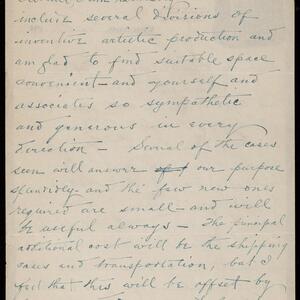 include several divisions of
inventive artistic production and
am glad to find suitable space
convenient – and yourself and
associates so sympathetic
and generous in every
direction – Several of the cases
seen will answer our purpose
splendidly – and the few new ones
required are small – and will
be useful always – The principal
additional cost will be the shipping
cases and transportation, but I
feel that this will be offset by